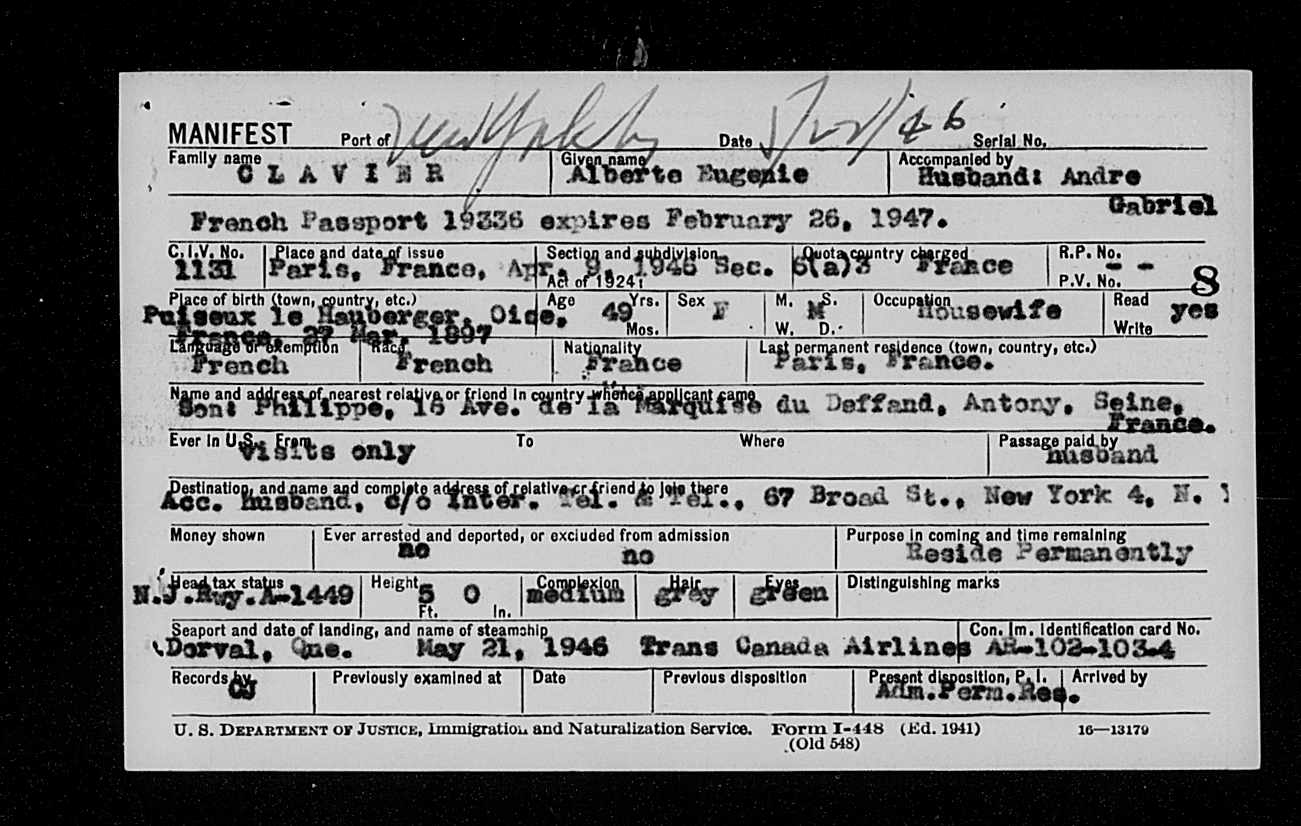 MANIFEST Port of Date 5/22/46 Serial No.
Family name Given name Accompanied by
CLAVIER Alberte Eugenie Husband: Andre
Gabriel
French Passport 19336 expires February 26, 1947.
C.I.V. No. Place and date of issue Section and subdivision Quota country charged R.P. No. - -
1131 Paris, France, Apr. 9, 1946 Sec. 6(a)3 France
Act of 1924: P.V. No. 8
Place of birth (town, country, etc.) Age 49 Yrs. Mos. Sex F M. S. W. D. M Occupation Read Write yes
Puiseux le Hauberger, Oise, Housewife
France, 27 Mar. 1897
Language or exemption Race Nationality Last permanent residence (town, country, etc.)
French French France Paris, France.
Name and address of nearest relative or friend in country whence applicant came
Son: Philippe, 16 Ave. de la Marquise du Deffand, Antony, Seine,
France.
Ever in U.S. From To Where Passage paid by
Visits only husband
Destination, and name and complete address of relative or friend to join there
Acc. husband, c/o Inter. Tel. & Tel., 67 Broad St., New York 4, N. Y
Money shown Ever arrested and deported, or excluded from admission Purpose in coming and time remaining
no no Reside Permanently
Head tax status Height Complexion Hair Eyes Distinguishing marks
N.J.Rwy.A-1449 5 0 medium grey green
Ft. In.
Seaport and date of landing, and name of steamship Con. Im. Identification card No.
Dorval, Que. May 21, 1946 Trans Canada Airlines AR-102-103-4
Records by Previously examined at Date Previous disposition Present disposition, P. I. Arrived by
CJ Adm.Perm.Res.
U. S. DEPARTMENT OF JUSTICE, Immigration and Naturalization Service. Form I-448 (Ed. 1941) 16—13179
(Old 548)